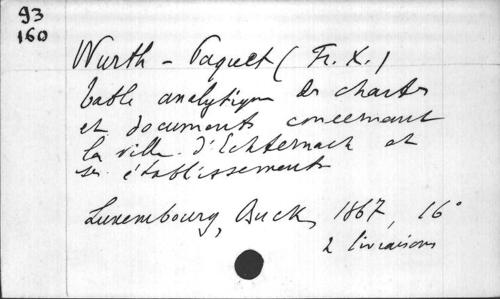 93
160
Wurth - Paquet (Fr. X.)
table analytique des chartes
et documents concernant
la ville d'Echternach et
ses établissements
Luxembourg, Buck, 1867, 16°
2 livraisons